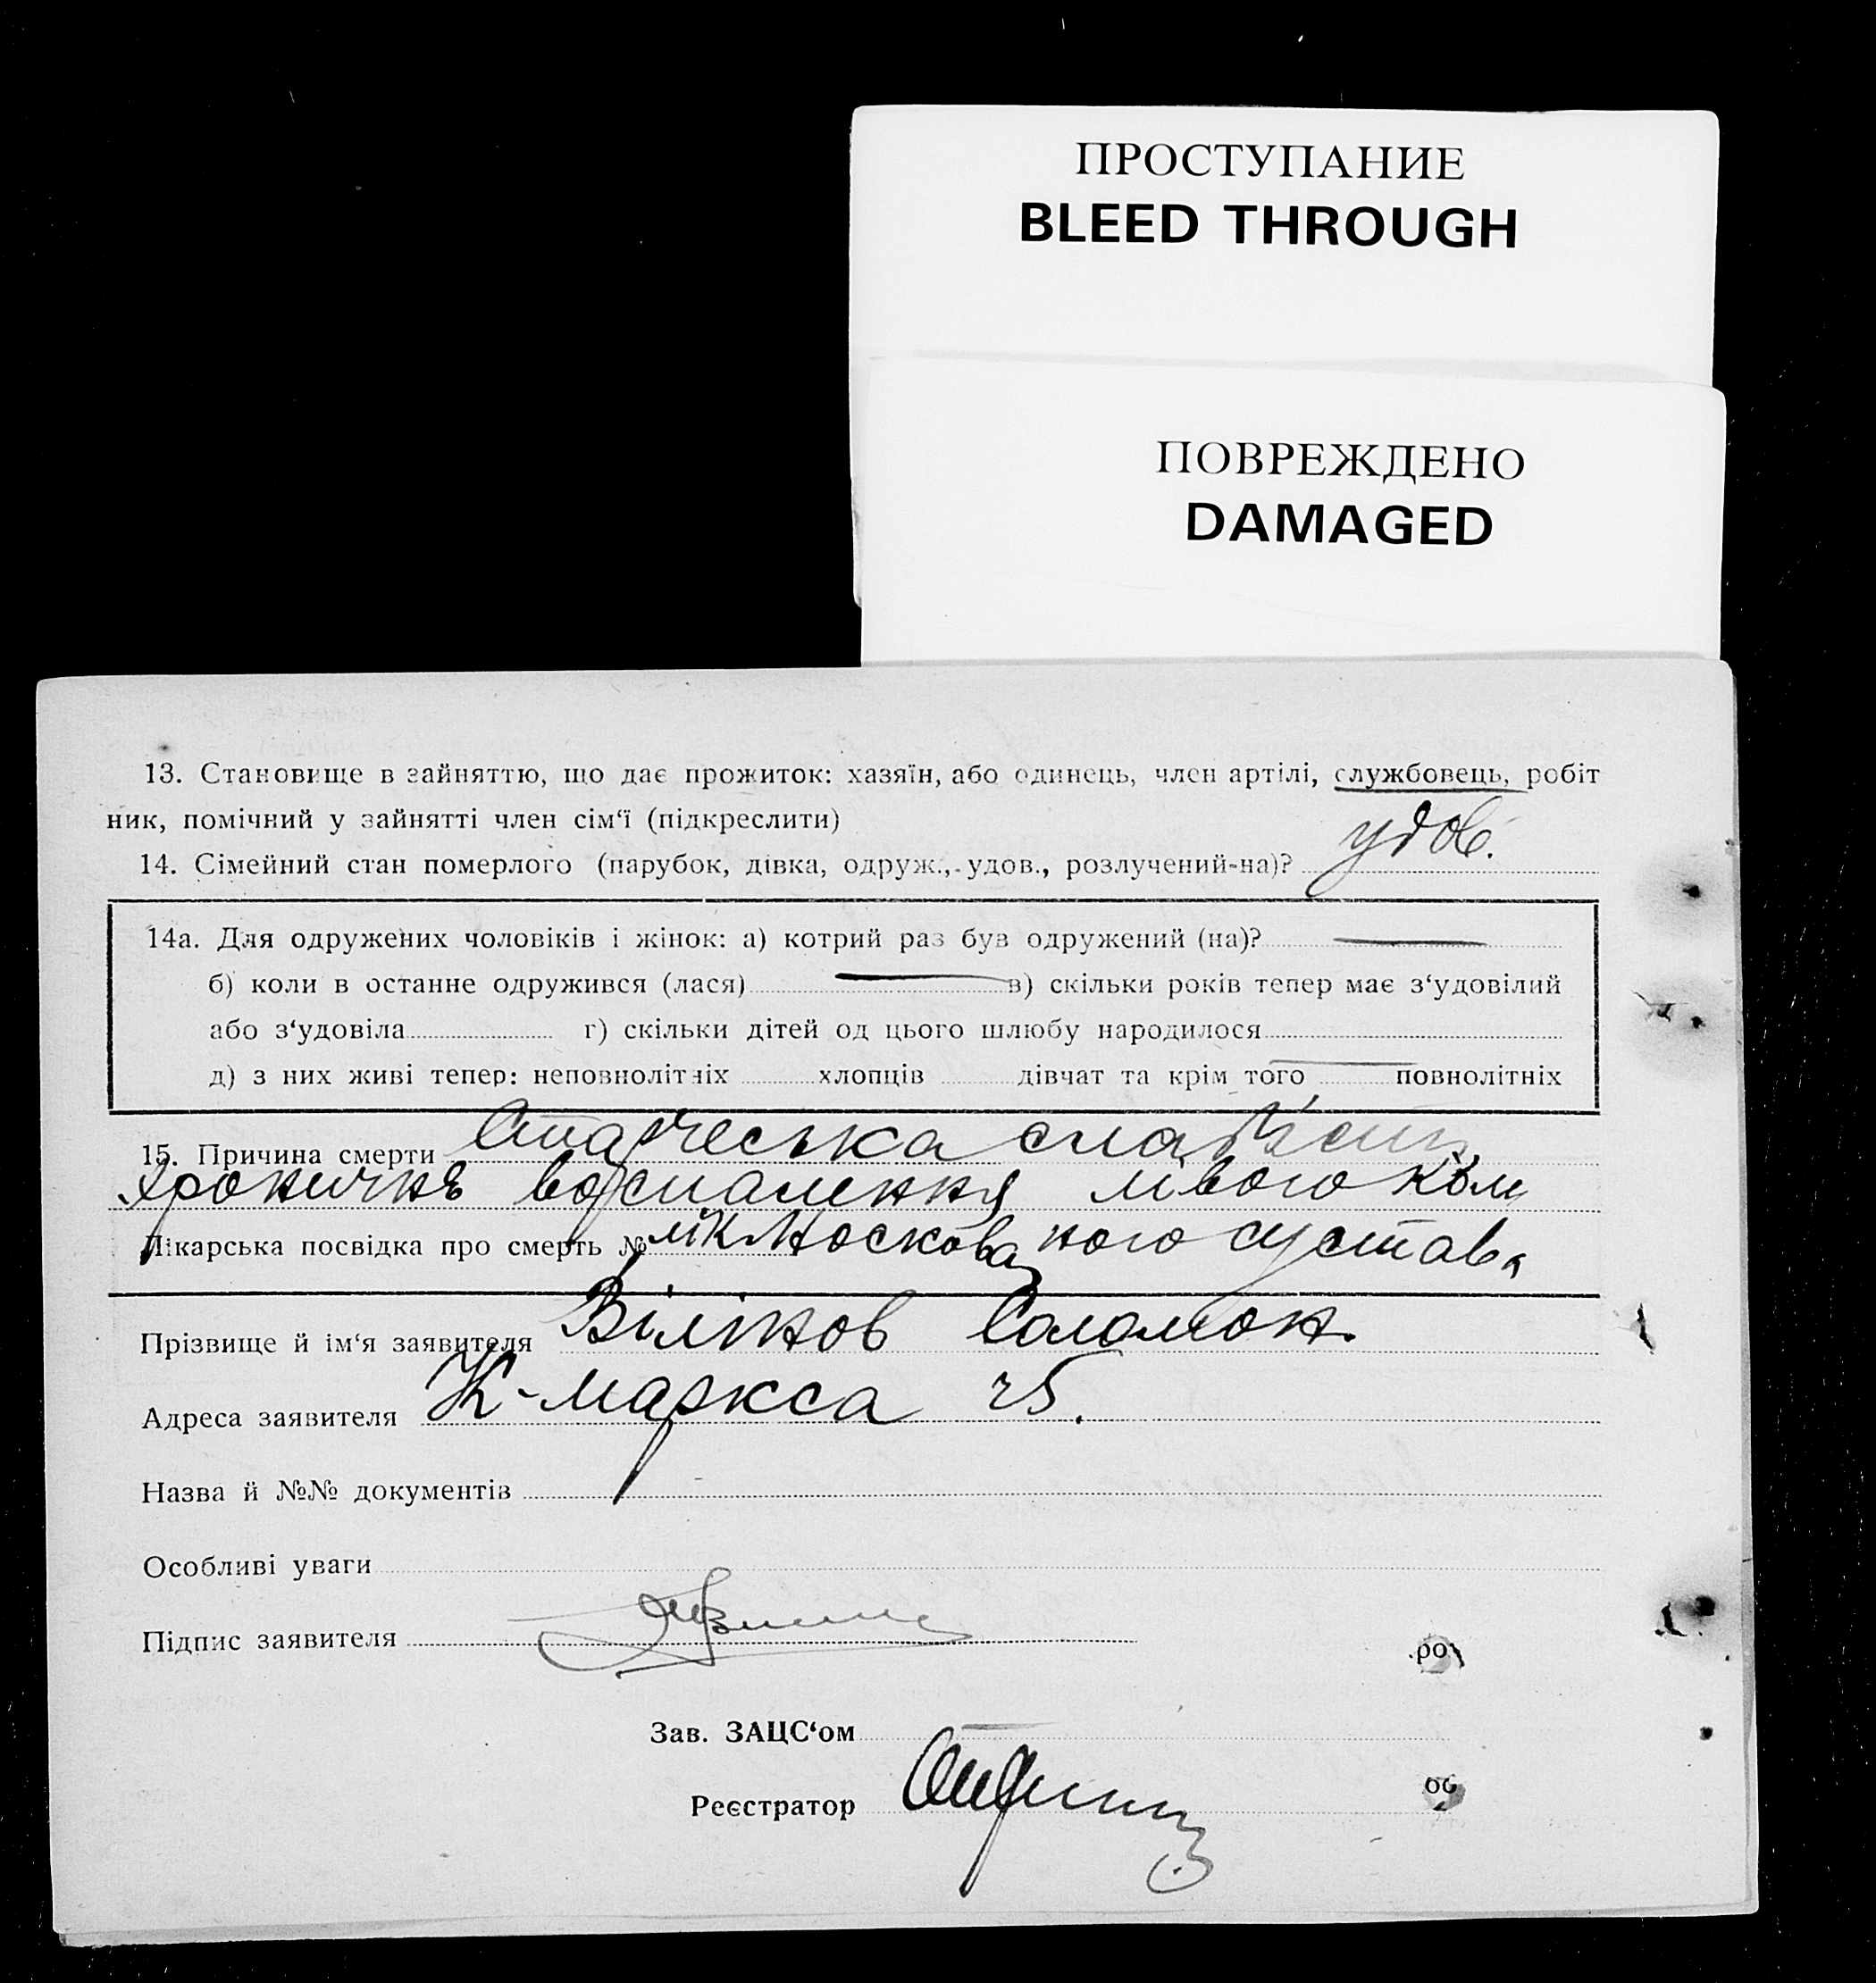 ПРОСТУПАНИЕ
BLEED THROUGH
ПОВРЕЖДЕНО
DAMAGED
13. Становище в зайняттю, що дає прожиток: хазяїн, або одинець, член артілі, службовець, робіт
ник, помічний у зайнятті член сім‘ї (підкреслити)
14. Сімейний стан померлого (парубок, дівка, одруж., удов., розлучений-на)? удов.
14а. Для одружених чоловіків і жінок: а) котрий раз був одружений (на)?
б) коли в останнє одружився (лася) в) скільки років тепер має з‘удовілий
або з‘удовіла г) скільки дітей од цього шлюбу народилося
д) з них живі тепер: неповнолітніх хлопців дівчат та крім того повнолітніх
15. Причина смерти Старческа
лівого колі
Лікарська посвідка про смерть № лік Москова ного сустава
Прізвище й ім‘я заявителя Соломон.
Адреса заявителя К-Маркса 25.
Назва й №№ документів
Особливі уваги
Підпис заявителя
Зав. ЗАЦС‘ом
Реєстратор